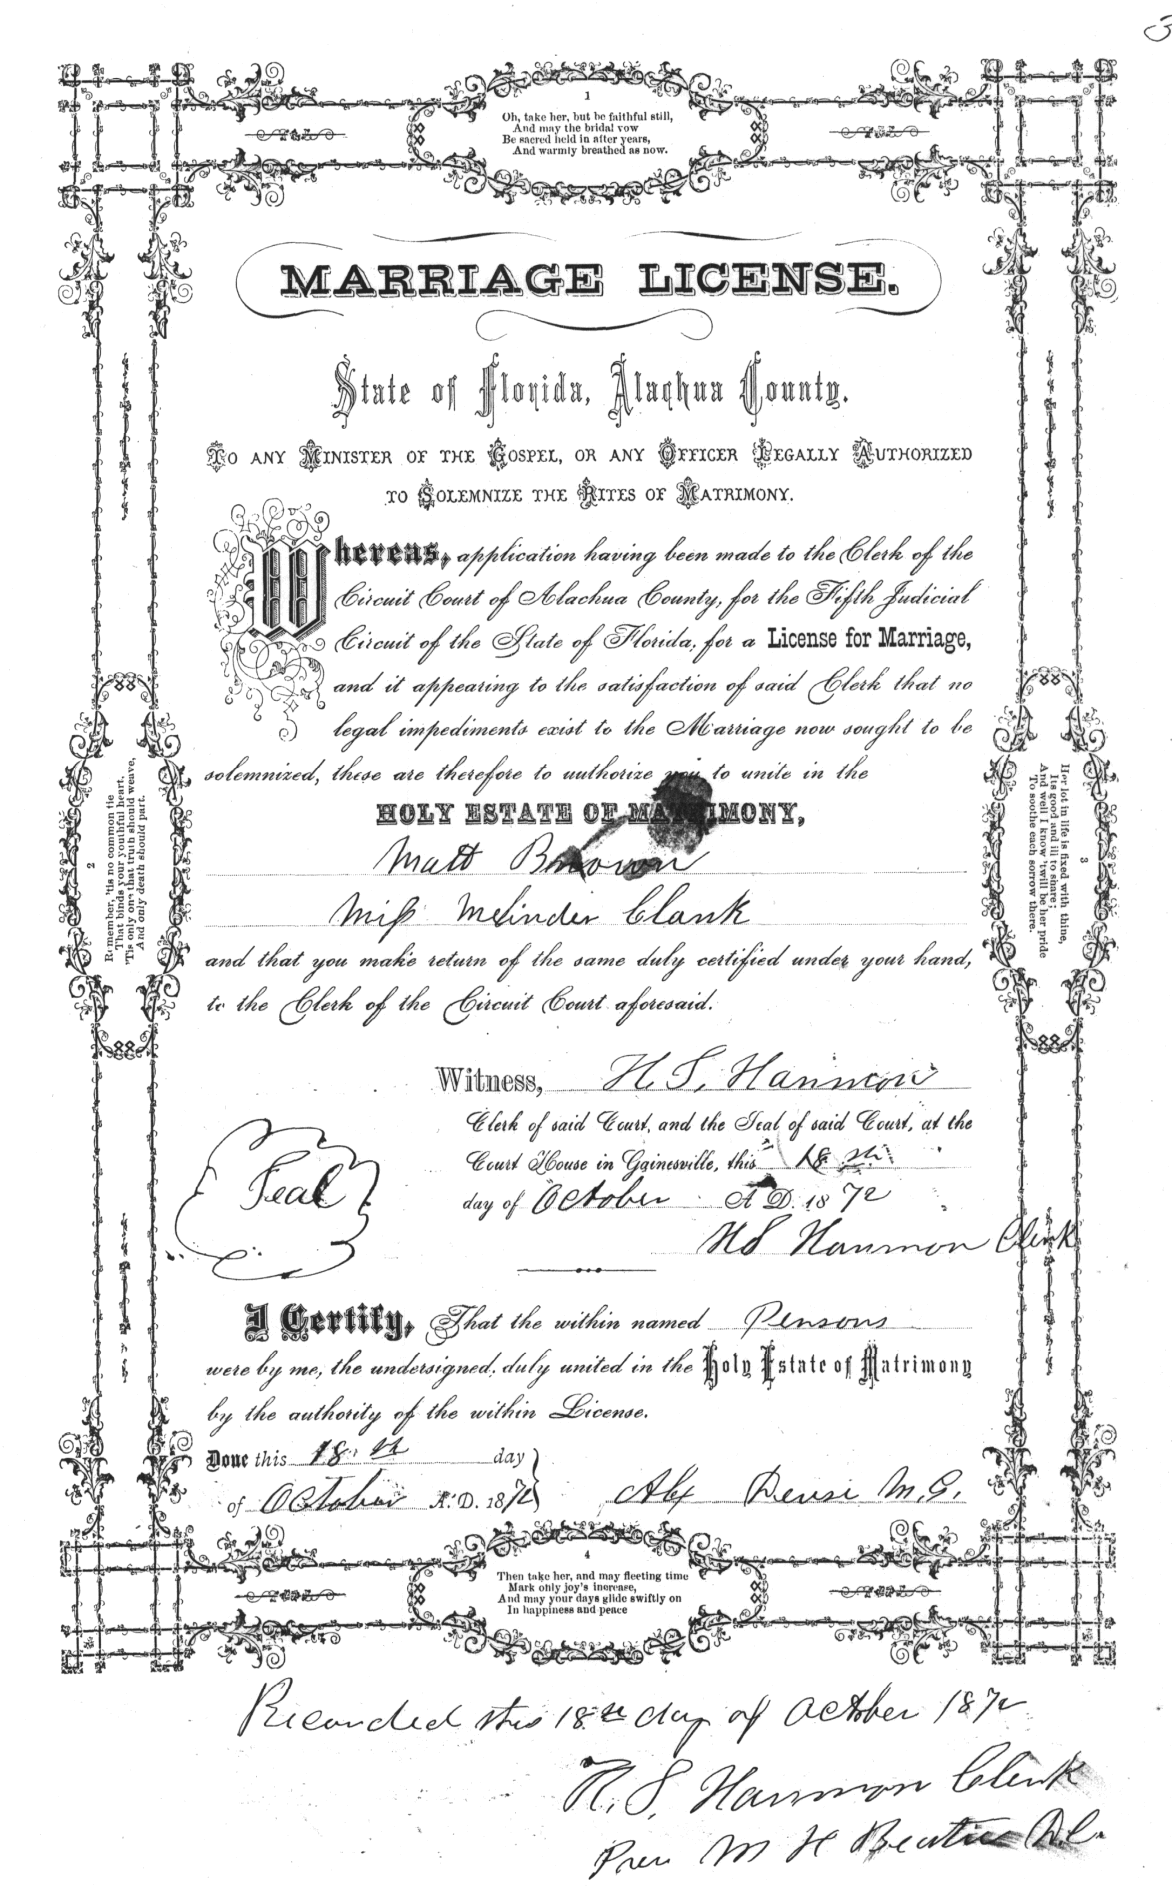 1
Oh, take her, but be faithful still,
And may the bridal vow
Be sacred held in after years,
And warmly breathed as now.
MARRIAGE LICENSE.
State of Florida, Alachua County.
TO ANY MINISTER OF THE GOSPEL, OR ANY OFFICER LEGALLY AUTHORIZED
TO SOLEMNIZE THE RITES OF MATRIMONY.
Whereas, application having been made to the Clerk of the
Circuit Court of Alachua County, for the Fifth Judicial
Circuit of the State of Florida, for a License for Marriage,
and it appearing to the satisfaction of said Clerk that no
legal impediments exist to the Marriage now sought to be
solemnized, these are therefore to authorize you to unite in the
HOLY ESTATE OF MATRIMONY,
Matt Brown
Miss Melinder Clark
and that you make return of the same duly certified under your hand,
to the Clerk of the Circuit Court aforesaid.
2
Remember, 'tis no common tie
That binds your youthful heart,
'Tis only one that truth should weave,
And only death should part.
3
Her lot in life is fixed with thine,
Its good and ill to share;
And well I know 'twill be her pride
To soothe each sorrow there.
Witness, H. S. Harmon
Clerk of said Court, and the Seal of said Court, at the
Court House in Gainesville, this 18th
day of October A. D. 1872
Seal
H S Harmon Clerk
I Certify, That the within named Persons
were by me, the undersigned, duly united in the Holy Estate of Matrimony
by the authority of the within License.
Done this 18th day
of October A. D. 1872
Alx M. G.
4
Then take her, and may fleeting time
Mark only joy's increase,
And may your days glide swiftly on
In happiness and peace
Recorded this 18th day of October 1872
H. S. Harmon Clerk
Per M H D. C.